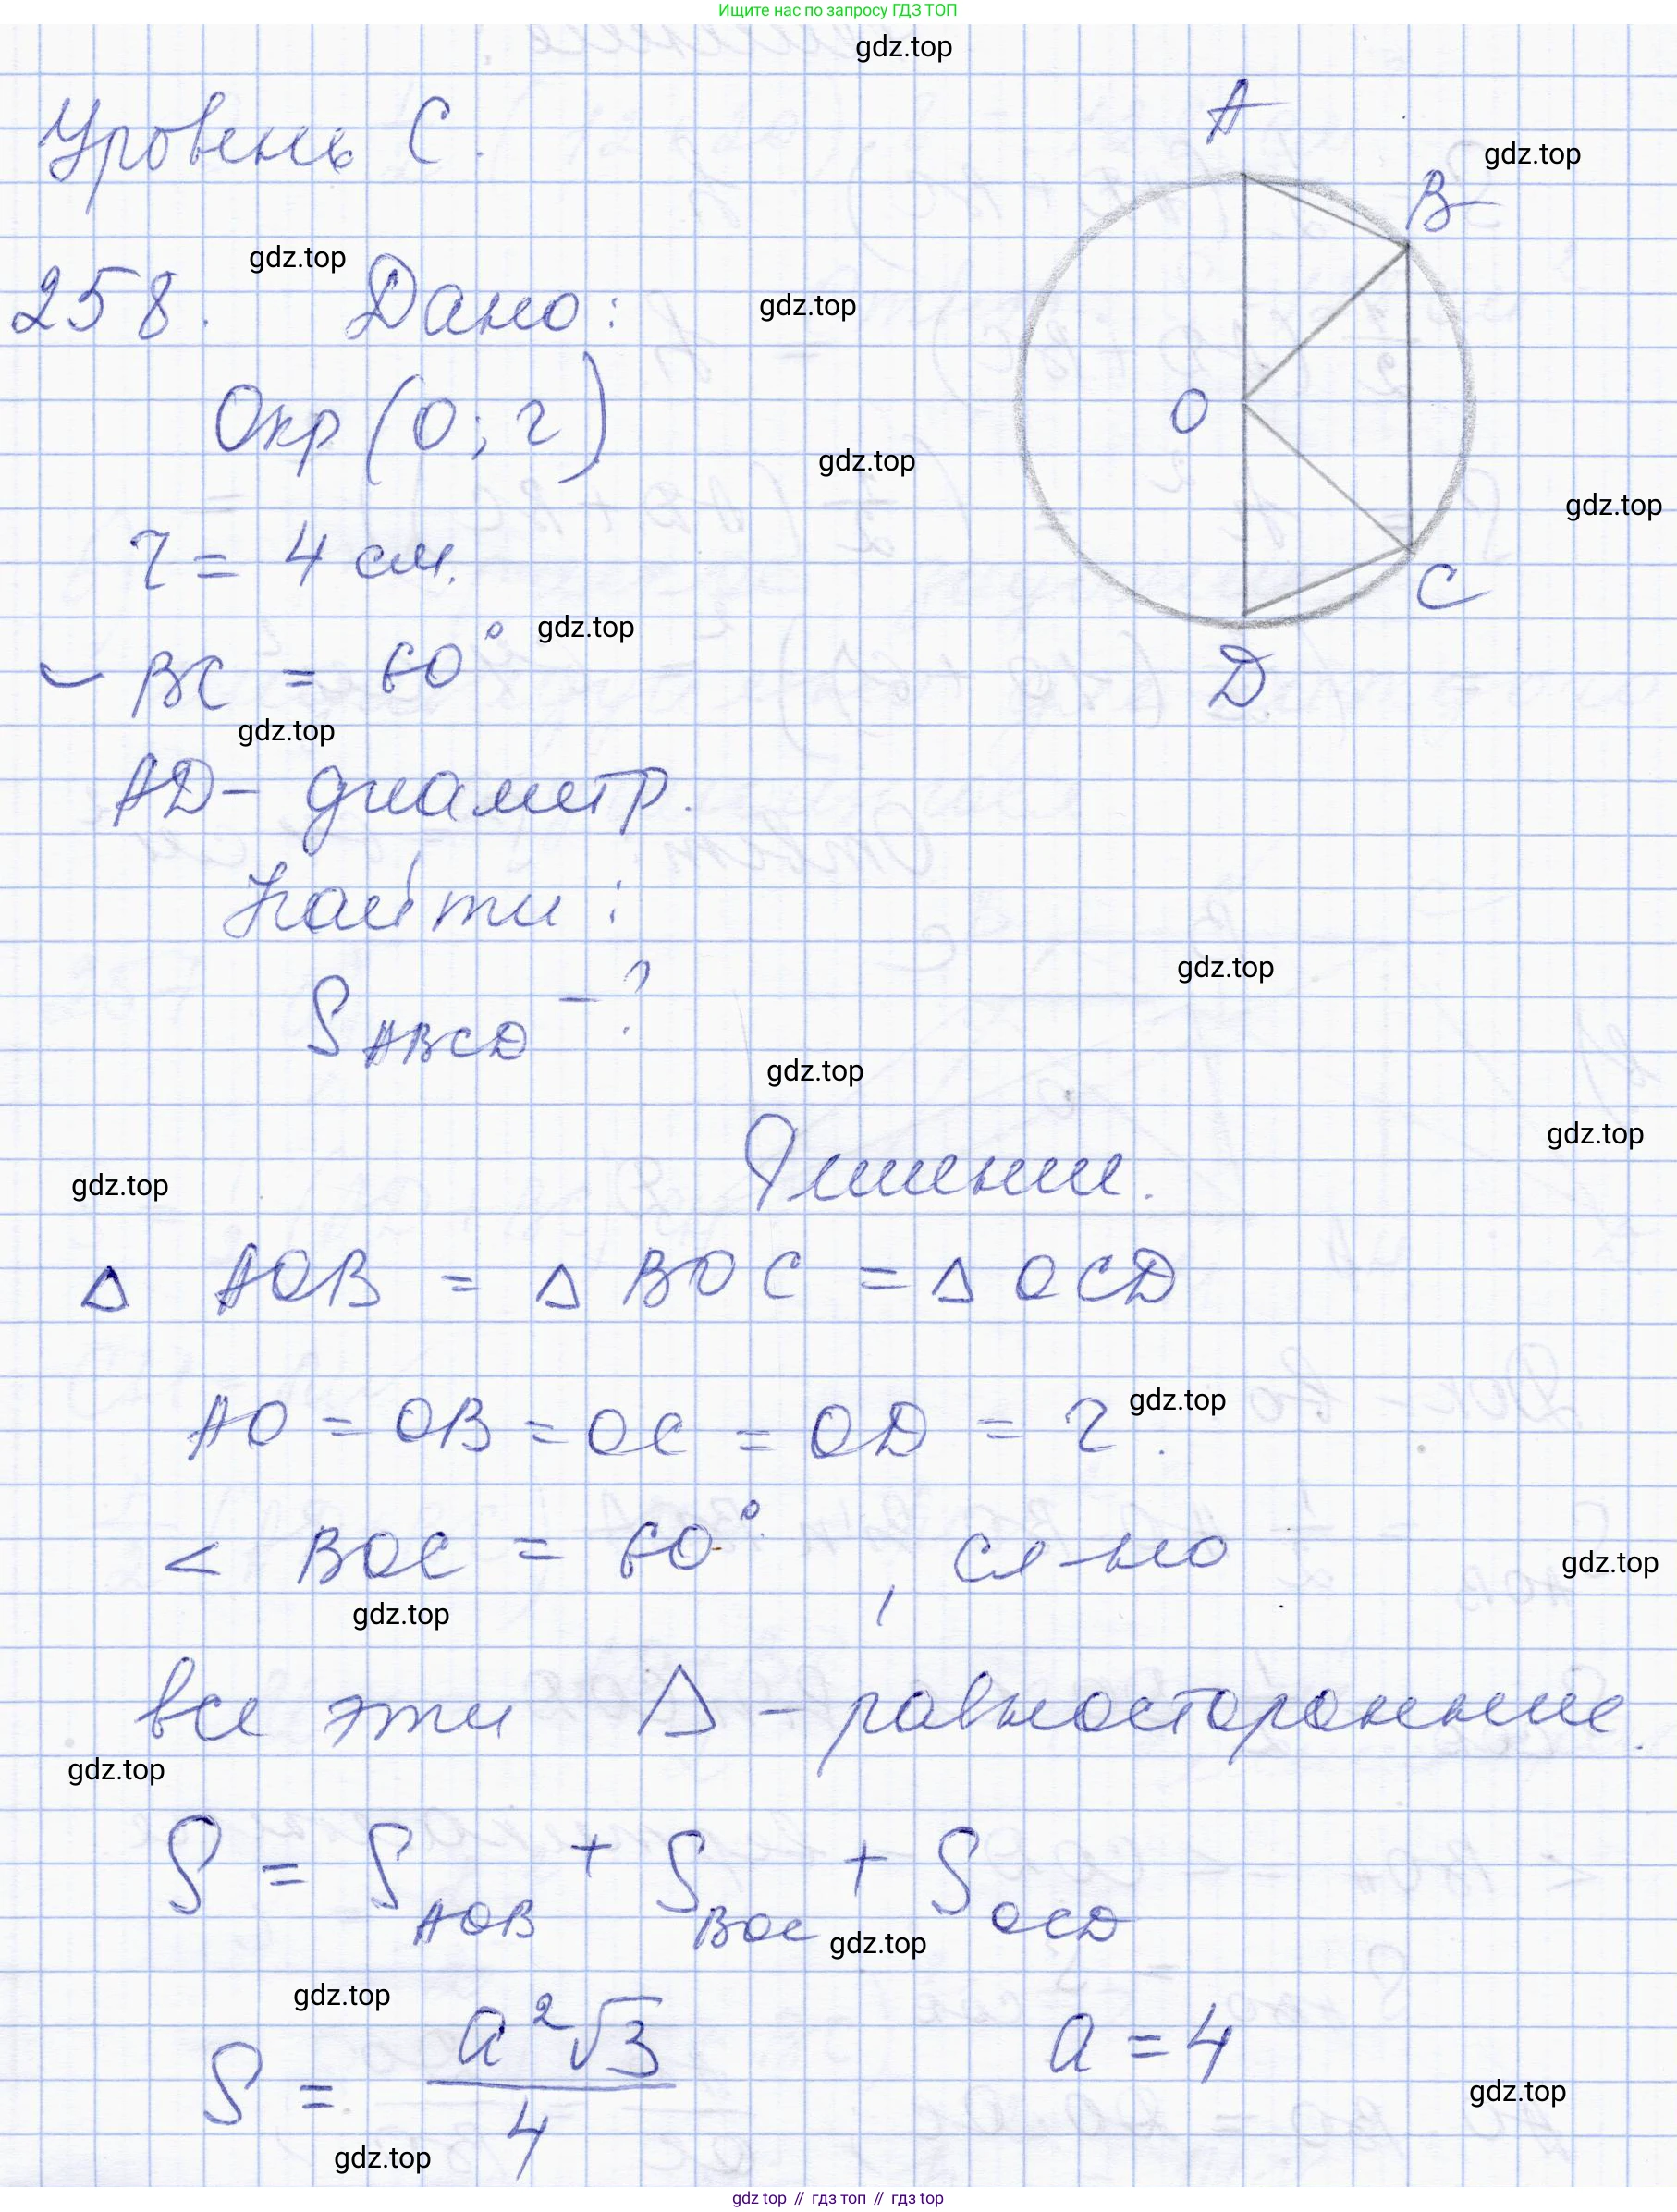 Ищите нас по запросу ГДЗ ТОП
gdz.top
Уровень С.
A
gdz.top
B
gdz.top
258. Дано:
gdz.top
Окр (О; r)
O
gdz.top
gdz.top
r = 4 см.
C
gdz.top
◡ BC = 60°
D
gdz.top
AD - диаметр.
Найти:
gdz.top
S ABCD - ?
gdz.top
gdz.top
Решение.
gdz.top
Δ AOB = Δ BOC = Δ OCD
AO = OB = OC = OD = r.
gdz.top
< BOC = 60°, сл-но
gdz.top
gdz.top
все эти Δ - равносторонние.
gdz.top
S = S AOB + S BOC + S OCD
gdz.top
gdz.top
S = a²√3 / 4 a = 4
gdz.top
gdz.top
gdz top // гдз топ // gdz top